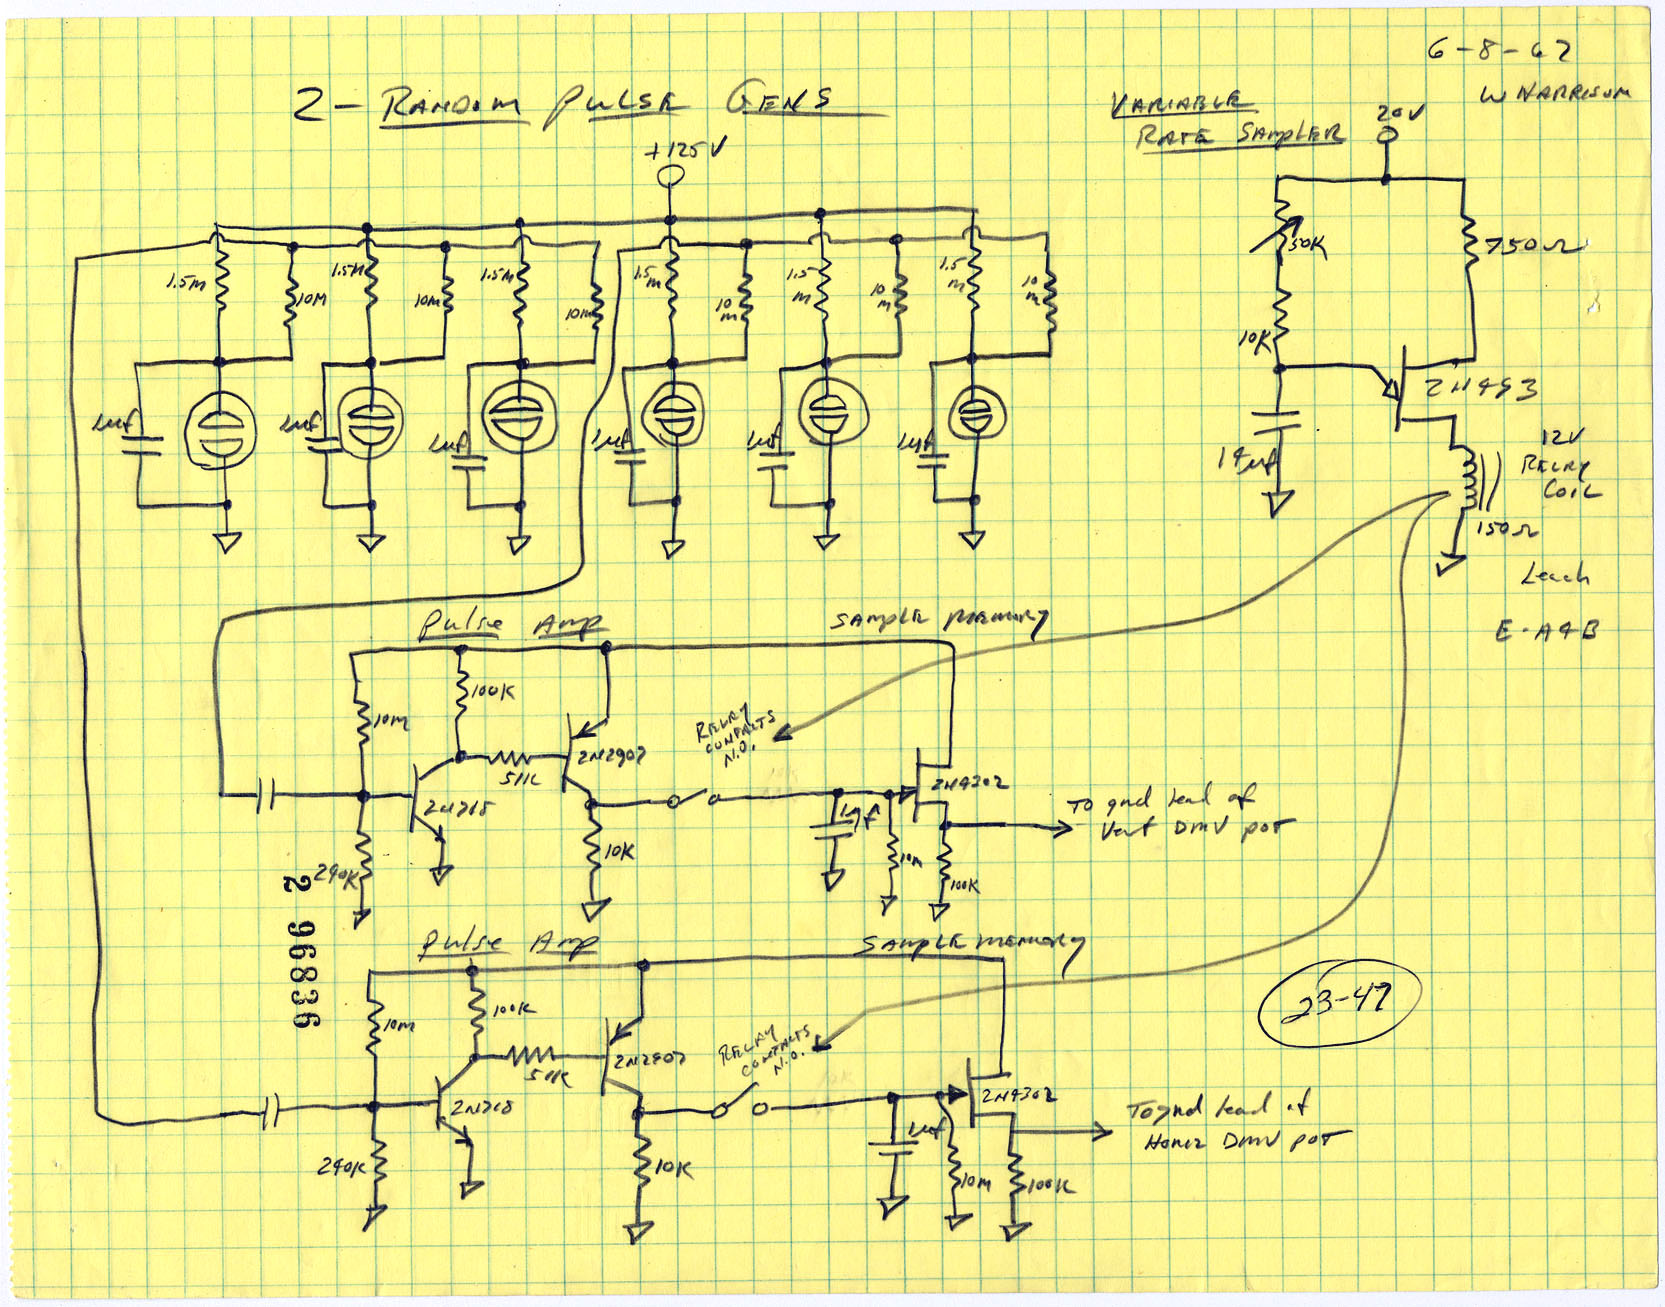 6-8-67
W HARRISON
2- RANDOM PULSE GENS
+125V
VARIABLE
RATE SAMPLER
20V
1.5M
10M
1.5M
10M
1.5M
10M
1.5
M
10
M
1.5
M
10
M
1.5
M
10
M
1uf
1uf
1uf
1uf
1uf
1uf
50K
750Ω
10K
2N493
14uf
12V
RELAY
COIL
150Ω
Leach
E-A4B
Pulse Amp
SAMPLE MEMORY
10M
100K
51K
2N2907
2N718
240K
10K
RELAY
CONTACTS
N.O.
1uf
2N4302
10M
100K
To gnd lead of
Vert DMV POT
2 96836
Pulse Amp
SAMPLE MEMORY
10M
100K
51K
2N2907
2N718
240K
10K
RELAY
CONTACTS
N.O.
1uf
2N4302
10M
100K
To gnd lead of
Horiz DMV POT
23-47